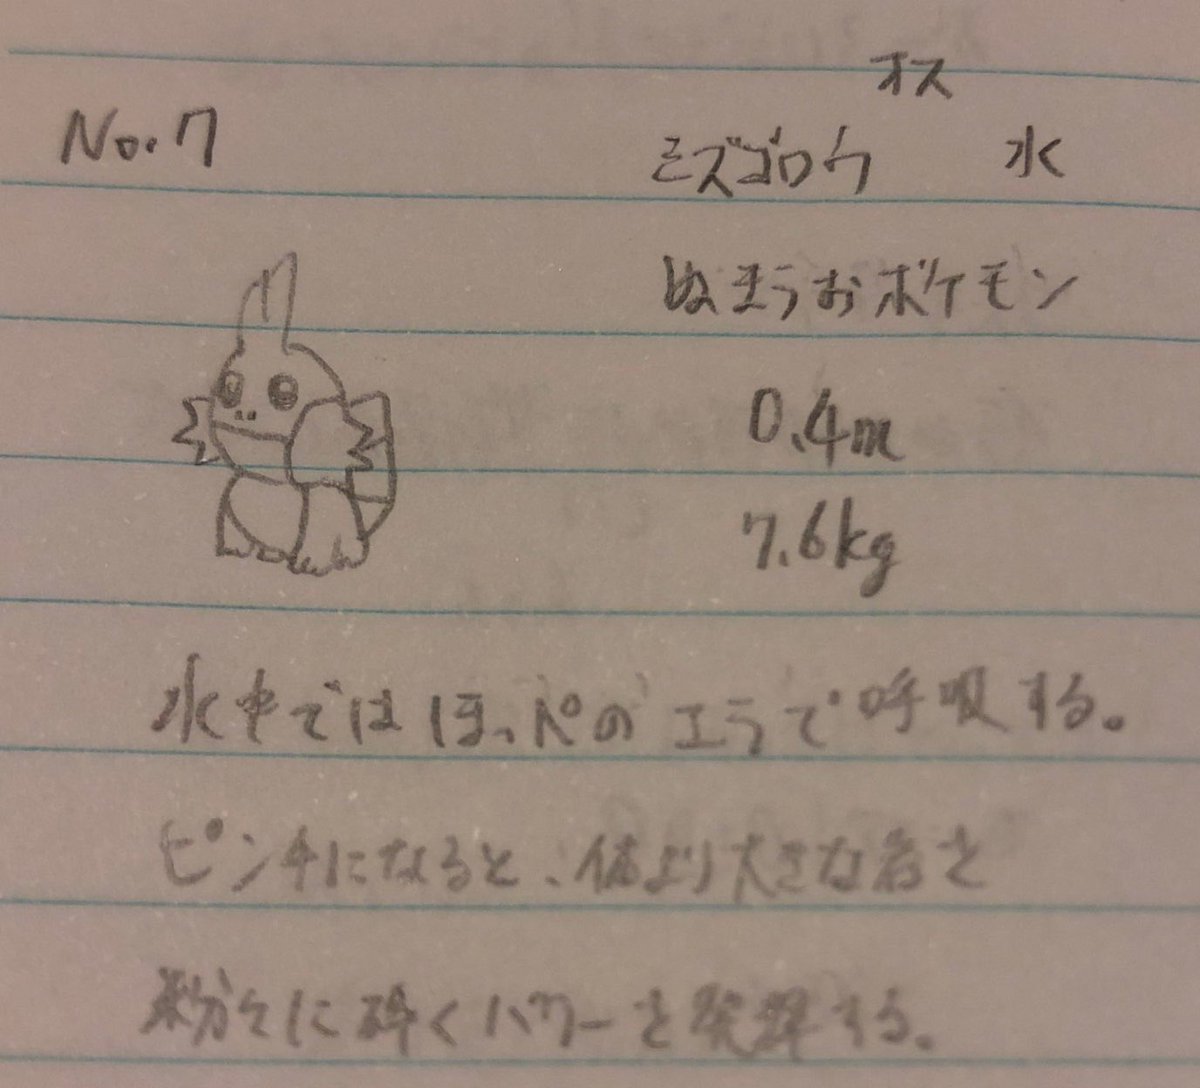 オス
No.7 ミズゴロウ 水
ぬまうおポケモン
0.4m
7.6kg
水中ではほっぺのエラで呼吸する。
ピンチになると、体より大きな岩を
粉々に砕くパワーを発揮する。